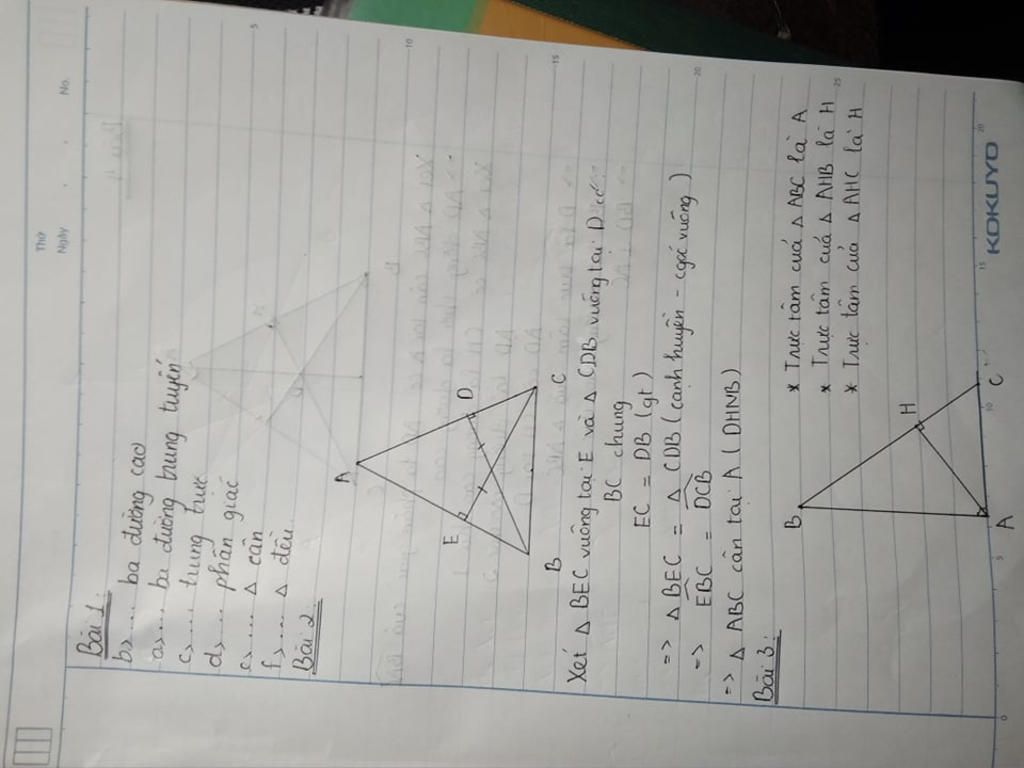 Thứ
Ngày
No.
Bài 1:
b> .... ba đường cao
a> .... ba đường trung tuyến
c> .... trung trực
d> .... phân giác
e> .... Δ cân
f> .... Δ đều
Bài 2
A
E
D
B
C
Xét Δ BEC vuông tại E và Δ CDB vuông tại D có:
BC chung
EC = DB (gt)
=> Δ BEC = Δ CDB (cạnh huyền - cgóc vuông)
=> EBC = DCB
=> Δ ABC cân tại A (DHNB)
Bài 3:
B
H
A
C
* Trực tâm của Δ ABC là A
* Trực tâm của Δ AHB là H
* Trực tâm của Δ AHC là H
5
10
15
20
25
0
5
10
15
20
KOKUYO